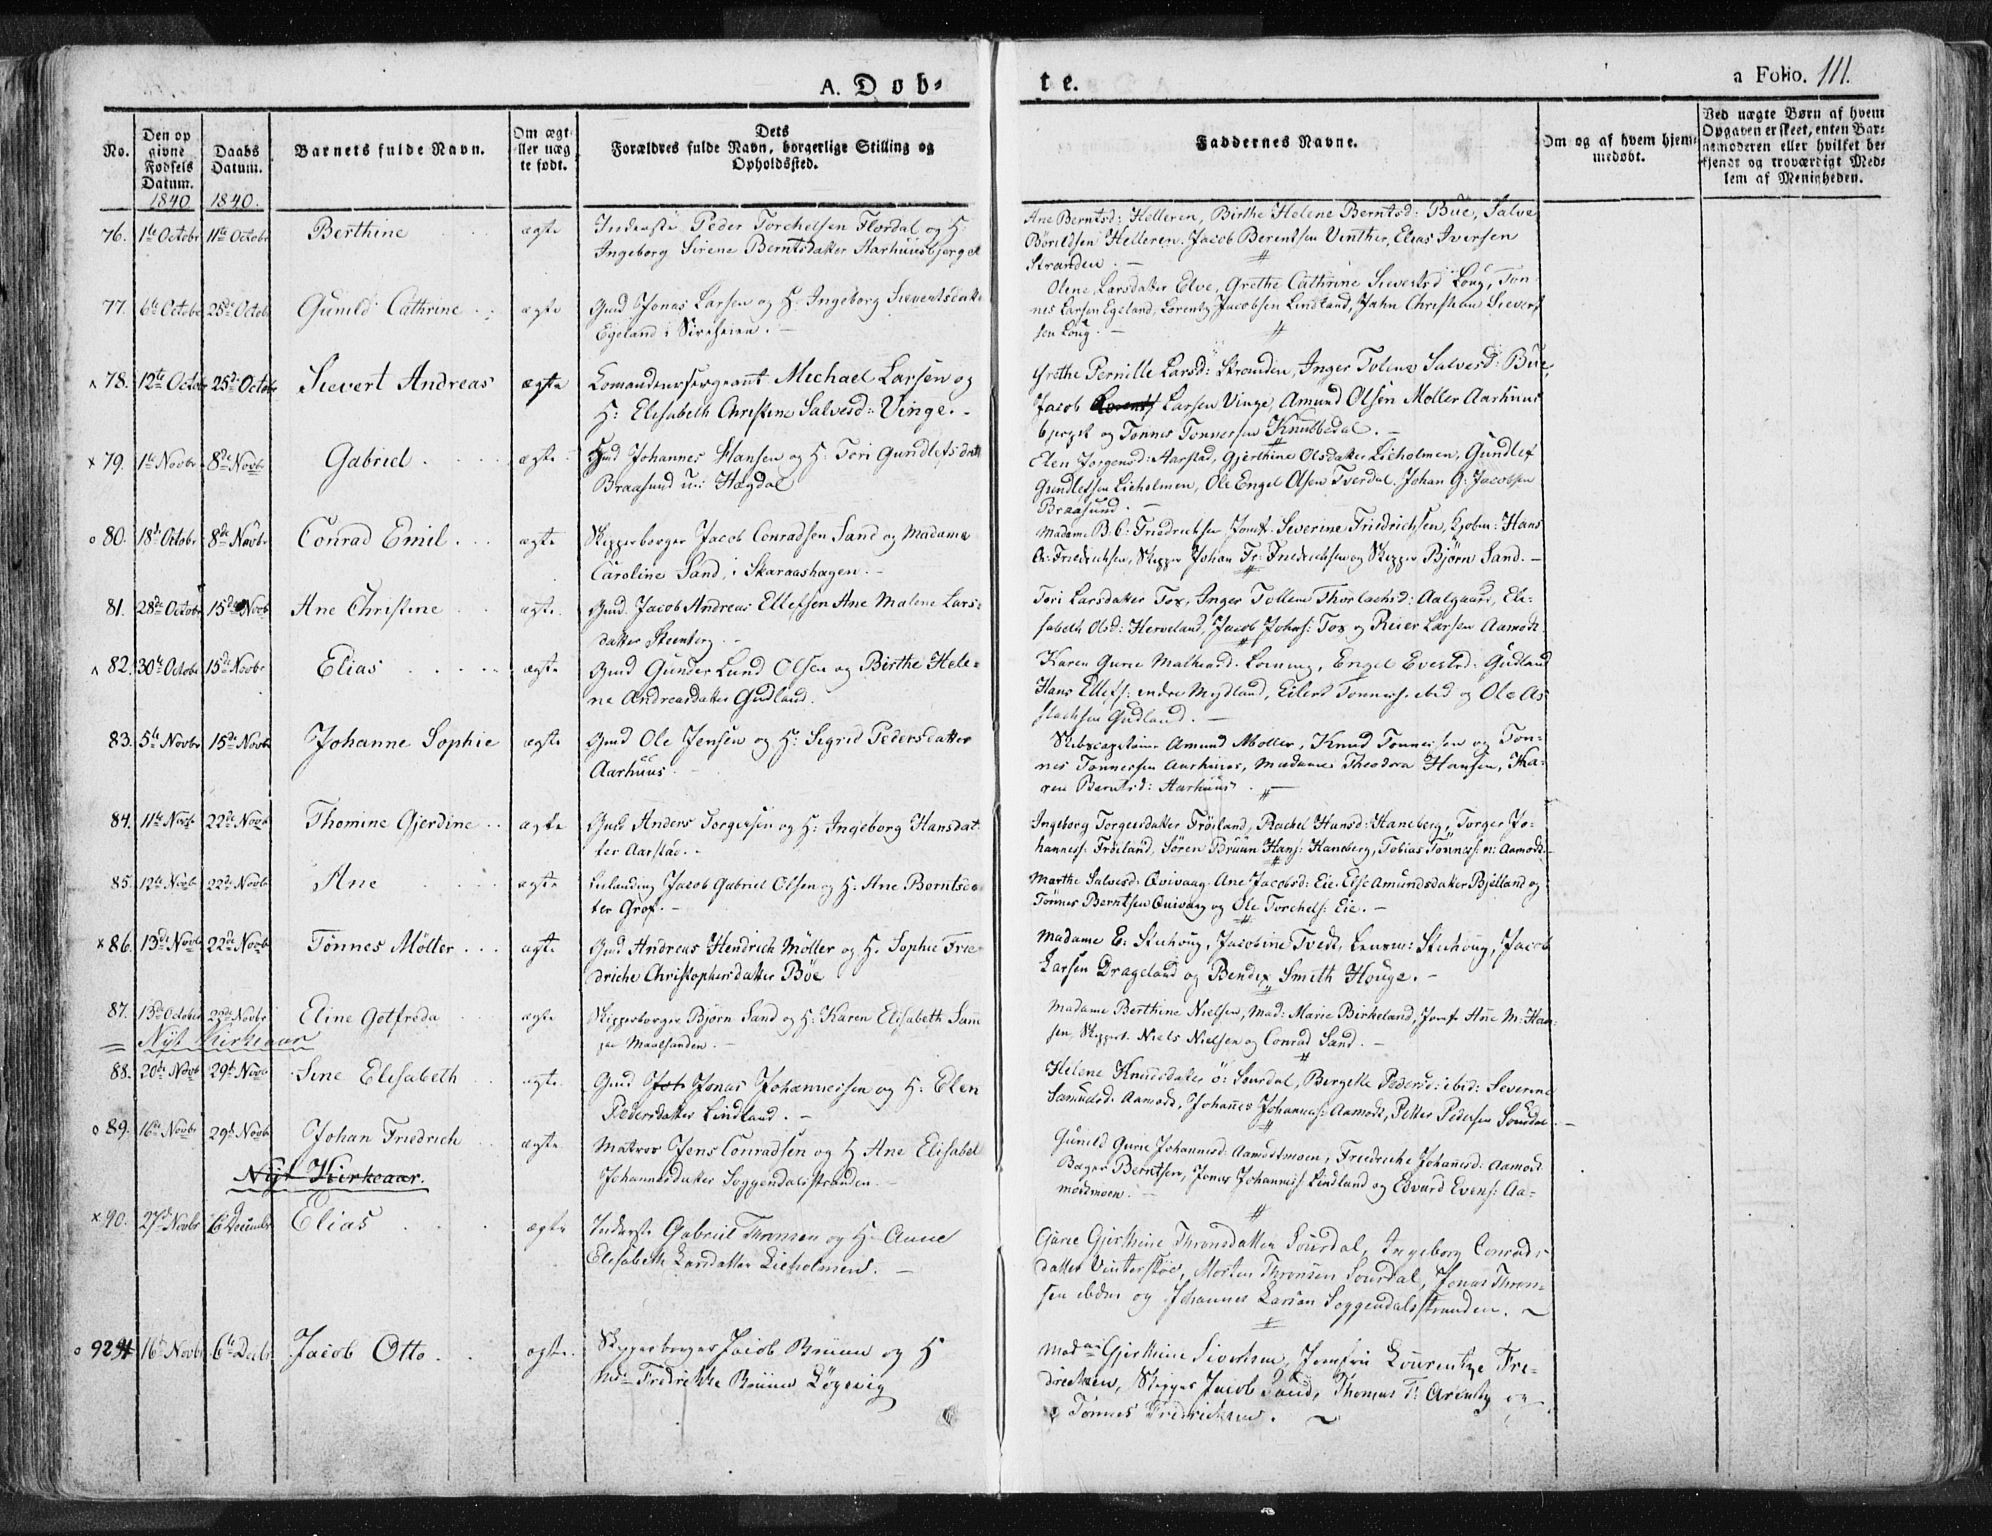 A. Døb-
te.
a Folio. 111.
No.
Den op
givne
Fødsels
Datum.
1840
Daabs
Datum.
1840.
Barnets fulde Navn.
Om ægt
eller uæg
te født.
Dets
Forældres fulde Navn, borgerlige Stilling og
Opholdssted.
Faddernes Navne.
Om og af hvem hjem-
medøbt.
Ved uægte Børn af hvem
Opgaven er skeet, enten Bar-
nemoderen eller hvilket be-
kjendt og troværdigt Med-
lem af Menigheden.
76. 1te Octobr 11te Octobr Berthine ægte Inderste Peder Torchelsen Flordal og H:
Ingeborg Sirene Berntsdatter Aarhuusbjerget
Ane Berntsd: Helleren, Birthe Helene Berntsd: Bue, Salve
Bårildsen Helleren. Jacob Berentsen Vinther, Elias Iversen
Stranden. –
77. 6te Octobr 25de Octobr Gunild Cathrine ægte Gmd. Jonas Larsen og H. Ingeborg Sievertsdatt
Egeland i Sireheien. –
Olene Larsdatter Elve, Grethe Cathrine Sievertsd Loug, Tøn
nes Larsen Egeland, Lorentz Jacobsen Lindland, Jahn Christian Siverts
sen Loug. –
78. 12te Octobr 25de Octobr Sievert Andreas ægte Comandeursergeant Michael Larsen og
H: Elisabeth Christine Salvesd: Vinge. –
Grethe Pernille Larsd: Stranden, Inger Toline Salvesd: Bue,
Jacob Larsen Vinge, Amund Olsen Møller Aarhuus
bjerget og Tønnes Tonnessen Knubbedal. –
79. 1te Novbr 8de Novbr Gabriel ægte Gmd Johannes Hansen og H. Tori Gundlefsdatt
Braasund u: Hægdal
Elen Jorgensd: Aarstad, Gjerthine Olsdatter Lieholmen, Gundlef
Gundlefsen Lieholmen, Ole Engel Olsen Tverdal. Johan G. Jacobsen
Braasund. –
80. 18de Octobr 8de Novbr Conrad Emil ægte Skipperborger Jacob Conradsen Sand og Madame
Caroline Sand, i Skaraashagen. –
Madame B. C. Friedrichsen Jomf: Severine Friedrichsen, Kjøbm: Hans
Chr Friedrichsen, Skipper Johan Fr: Friedrichsen og Skipper Bjørn Sand. –
81. 28de Octobr 15de Novb Ane Christine ægte Gmd. Jacob Andreas Ellefsen Ane Malene Lars-
datter Steenberg. –
Tori Larsdatter Tox, Inger Tolline Thorlachsd: Aalgaard, Eli-
sabeth Olsd: Herveland, Jacob Johns: Tox og Reier Larsen Aamodt
82. 30te Octobr 15de Novbr Elias ægte Gmd Gunder Lund Olsen og Birthe Hele-
ne Andreasdatter Gudland.
Karen Gurie Mathiasd: Loening, Engel Evertsd: Gudland
Hans Ellefs: endre Mydland, Eilert Tonness. ibid og Ole As
slachsen Gudland. –
83. 5te Novbr 15de Novbr Johanne Sophie ægte Gmd Ole Jensen og H: Sigrid Pedersdatter
Aarhuus.
Skibscapitaine Amund Møller, Knud Tonnessen og Tøn-
nes Tonnessen Aarhuus, Madame Theodora Hansen, Ka-
ren Berntsd: Aarhuus. –
84. 11te Novbr 22de Novbr Thomine Gjerdine ægte Gmd Anders Torgersen og H. Ingeborg Hansdat
ter Aarstad. –
Ingeborg Torgersdatter Frøiland, Rachel Hansd: Haneberg, Torger Jo-
hanness: Frøiland, Søren Bruun Hans: Haneberg, Tobias Tønness: n: Aamodt –
85. 12te Novbr 22de Novbr Ane ægte Leilænding Jacob Gabriel Olsen og H. Ane Berntsda
ter Grof. –
Marthe Salvesd: Qvivaag. Ane Jacobsd: Eie. Else Amundsdatter Bjelland og
Tønnes Berntsen Qvivaag og Ole Torchels: Eie. –
86. 13de Novbr 22de Novbr Tønnes Möller ægte Gmd Andreas Hendrich Møller og H. Sophie Frie
driche Christophersdatter Bøe
Madame E: Steehoug, Jacobine Tvedt, Lensm: Steehoug, Jacob
Larsen Drageland og Bendix Smith Houge. –
87. 13de October 22de Novbr Eline Gotfreda ægte Skipperborger Bjørn Sand og H: Karen Elisabeth Sam̅
Maalsanden. –
Madame Berthine Nielsen, Mad: Marie Birkeland, Jomf Ane M: Han
sen, Skippere Niels Nielsen og Conrad Sand. –
Nyt Kirkeaar
88. 20de Novb 29de Novb Sine Elisabeth ægte Gmd Jonas Johannessen og H: Elen
Pedersdatter Lindland. –
Helene Knudsdatter ø: Sourdal, Bergette Pedersd: ibid: Severine
Samuelsd: Aamodt, Johannes Johannes: Aamodt, Petter Pedersen Sourdal –
89. 16de Novbr 29de Novbr Johan Friedrich ægte Matros Jens Conradsen og H Ane Elisabet
Johannesdatter Soggendalsstranden –
Gunild Gurie Johannesd: Aamodtmoen, Friederiche Johanesd: Aamodt
Berntsen, Jonas Johanness Lindland og Edvard Evens: Aa-
modtmoen. –
Nyt Kirkeaar.
90. 27de Novbr 6 Decembr Elias ægte Inderste Gabriel Thronsen og H Anne
Elisabeth Larsdatter Lieholmen. –
Gurie Gjerthine Thronsdatter Sourdal, Ingeborg Conrads-
datter Vinterstøe, Morten Thronsen Sourdal, Jonas Thron-
sen ibdm og Johannes Larsen Soggendalsstranden. ~
92 16de Novbr 6te Decbr Jacob Otto ægte. Skipperborger Jacob Bruun og H
Mde Fredrikke Bruun Løgevig
Madme Gjerthine Sivertsen, Jomfru Lourentze Fre-
dricksen, Skipper Jacob Sand, Thomas T. Arentz og
Tønnes Fredricksen. ~